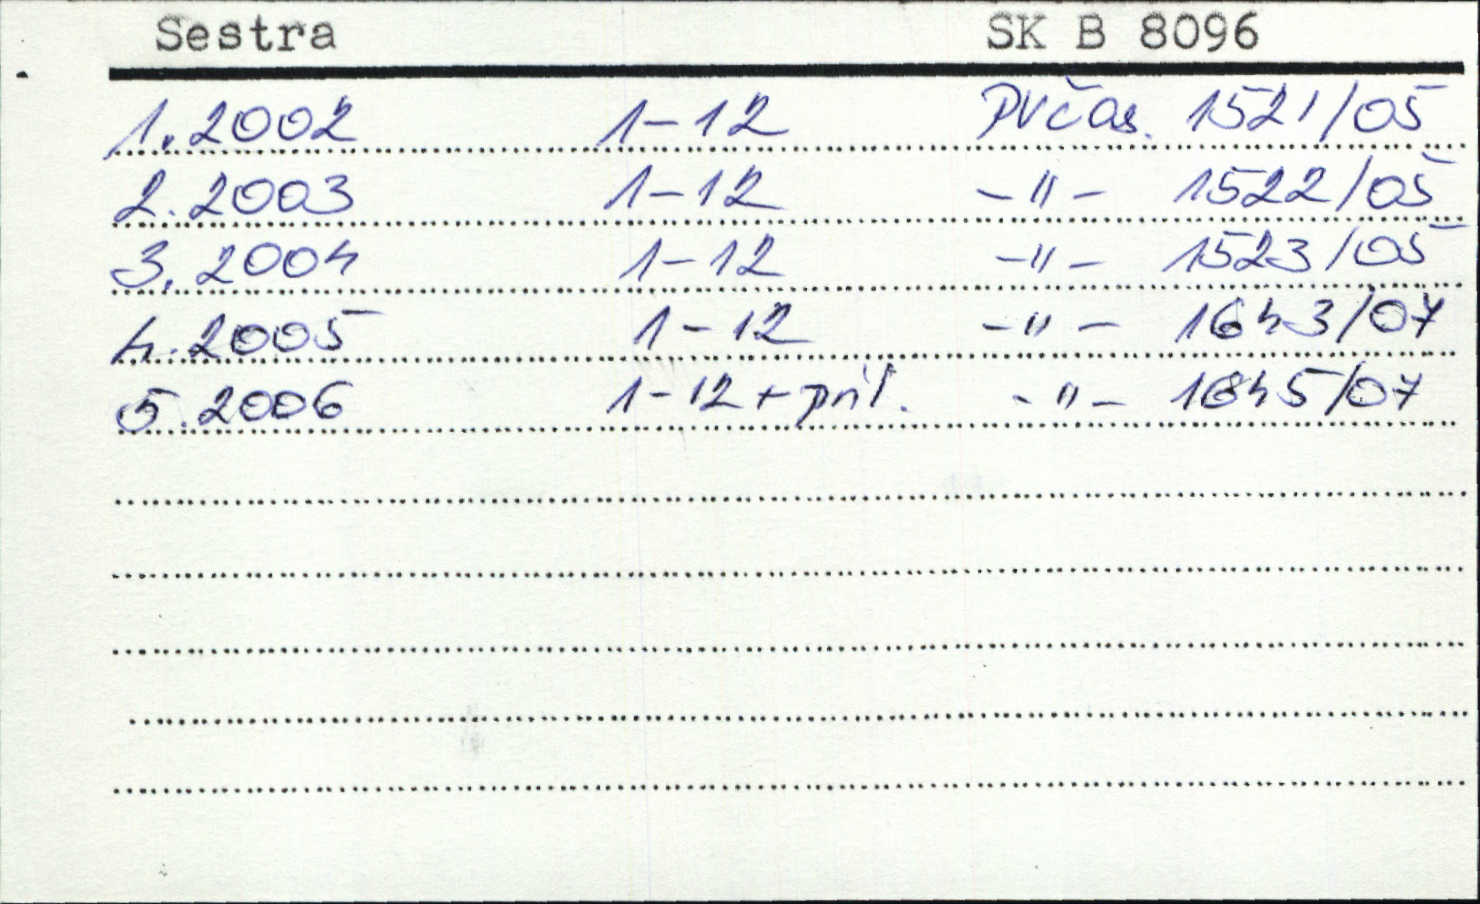 Sestra SK B 8096
1. 2002 1-12 PVčas. 1521/05
2. 2003 1-12 -"- 1522/05
3. 2004 1-12 -"- 1523/05
4. 2005 1-12 -"- 1643/07
5. 2006 1-12 + príl. -"- 1645/07